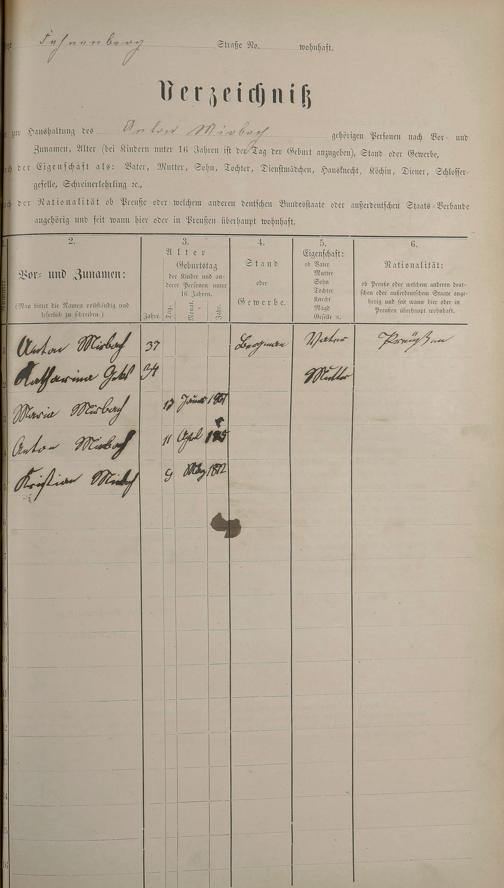 Fehrenberg Straße No. wohnhaft.
Verzeichniß
zur Haushaltung des Anton Mirbach gehörigen Personen nach Vor- und
Zunamen, Alter (bei Kindern unter 16 Jahren ist der Tag der Geburt anzugeben), Stand oder Gewerbe,
der Eigenschaft als: Vater, Mutter, Sohn, Tochter, Dienstmädchen, Hausknecht, Köchin, Diener, Schlosser-
geselle, Schreinerlehrling ꝛc.,
der Nationalität ob Preuße oder welchem anderen deutschen Bundesstaate oder außerdeutschen Staats-Verbande
angehörig und seit wann hier oder in Preußen überhaupt wohnhaft.
2. 3. 4. 5. 6.
Vor- und Zunamen:
(Man bittet die Namen vollständig und
leserlich zu schreiben.)
Alter
Geburtstag
der Kinder und an-
derer Personen unter
16 Jahren.
Jahre. Tag. Monat. Jahr.
Stand
oder
Gewerbe.
Eigenschaft:
ob Vater
Mutter
Sohn
Tochter
Knecht
Magd
Geselle ꝛc.
Nationalität:
ob Preuße oder welchem anderen deut-
schen oder außerdeutschen Staate ange-
hörig und seit wann hier oder in
Preußen überhaupt wohnhaft.
Anton Mirbach 37 Bergman Vater Preußen
Katharina 34 Mutter
Maria Mirbach 17
Anton Mirbach 11 Apl
Kristian Mirbach 9 May 1872